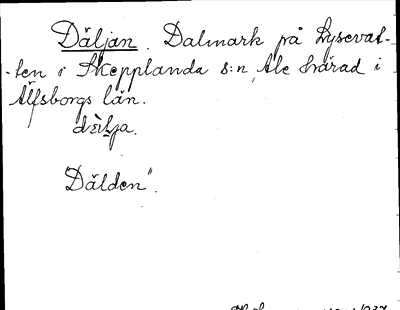 Däljan. Dalmark på Lysevat-
-ten i Skepplanda s:n, Ale härad i
Älfsborgs län.
"Dälden".